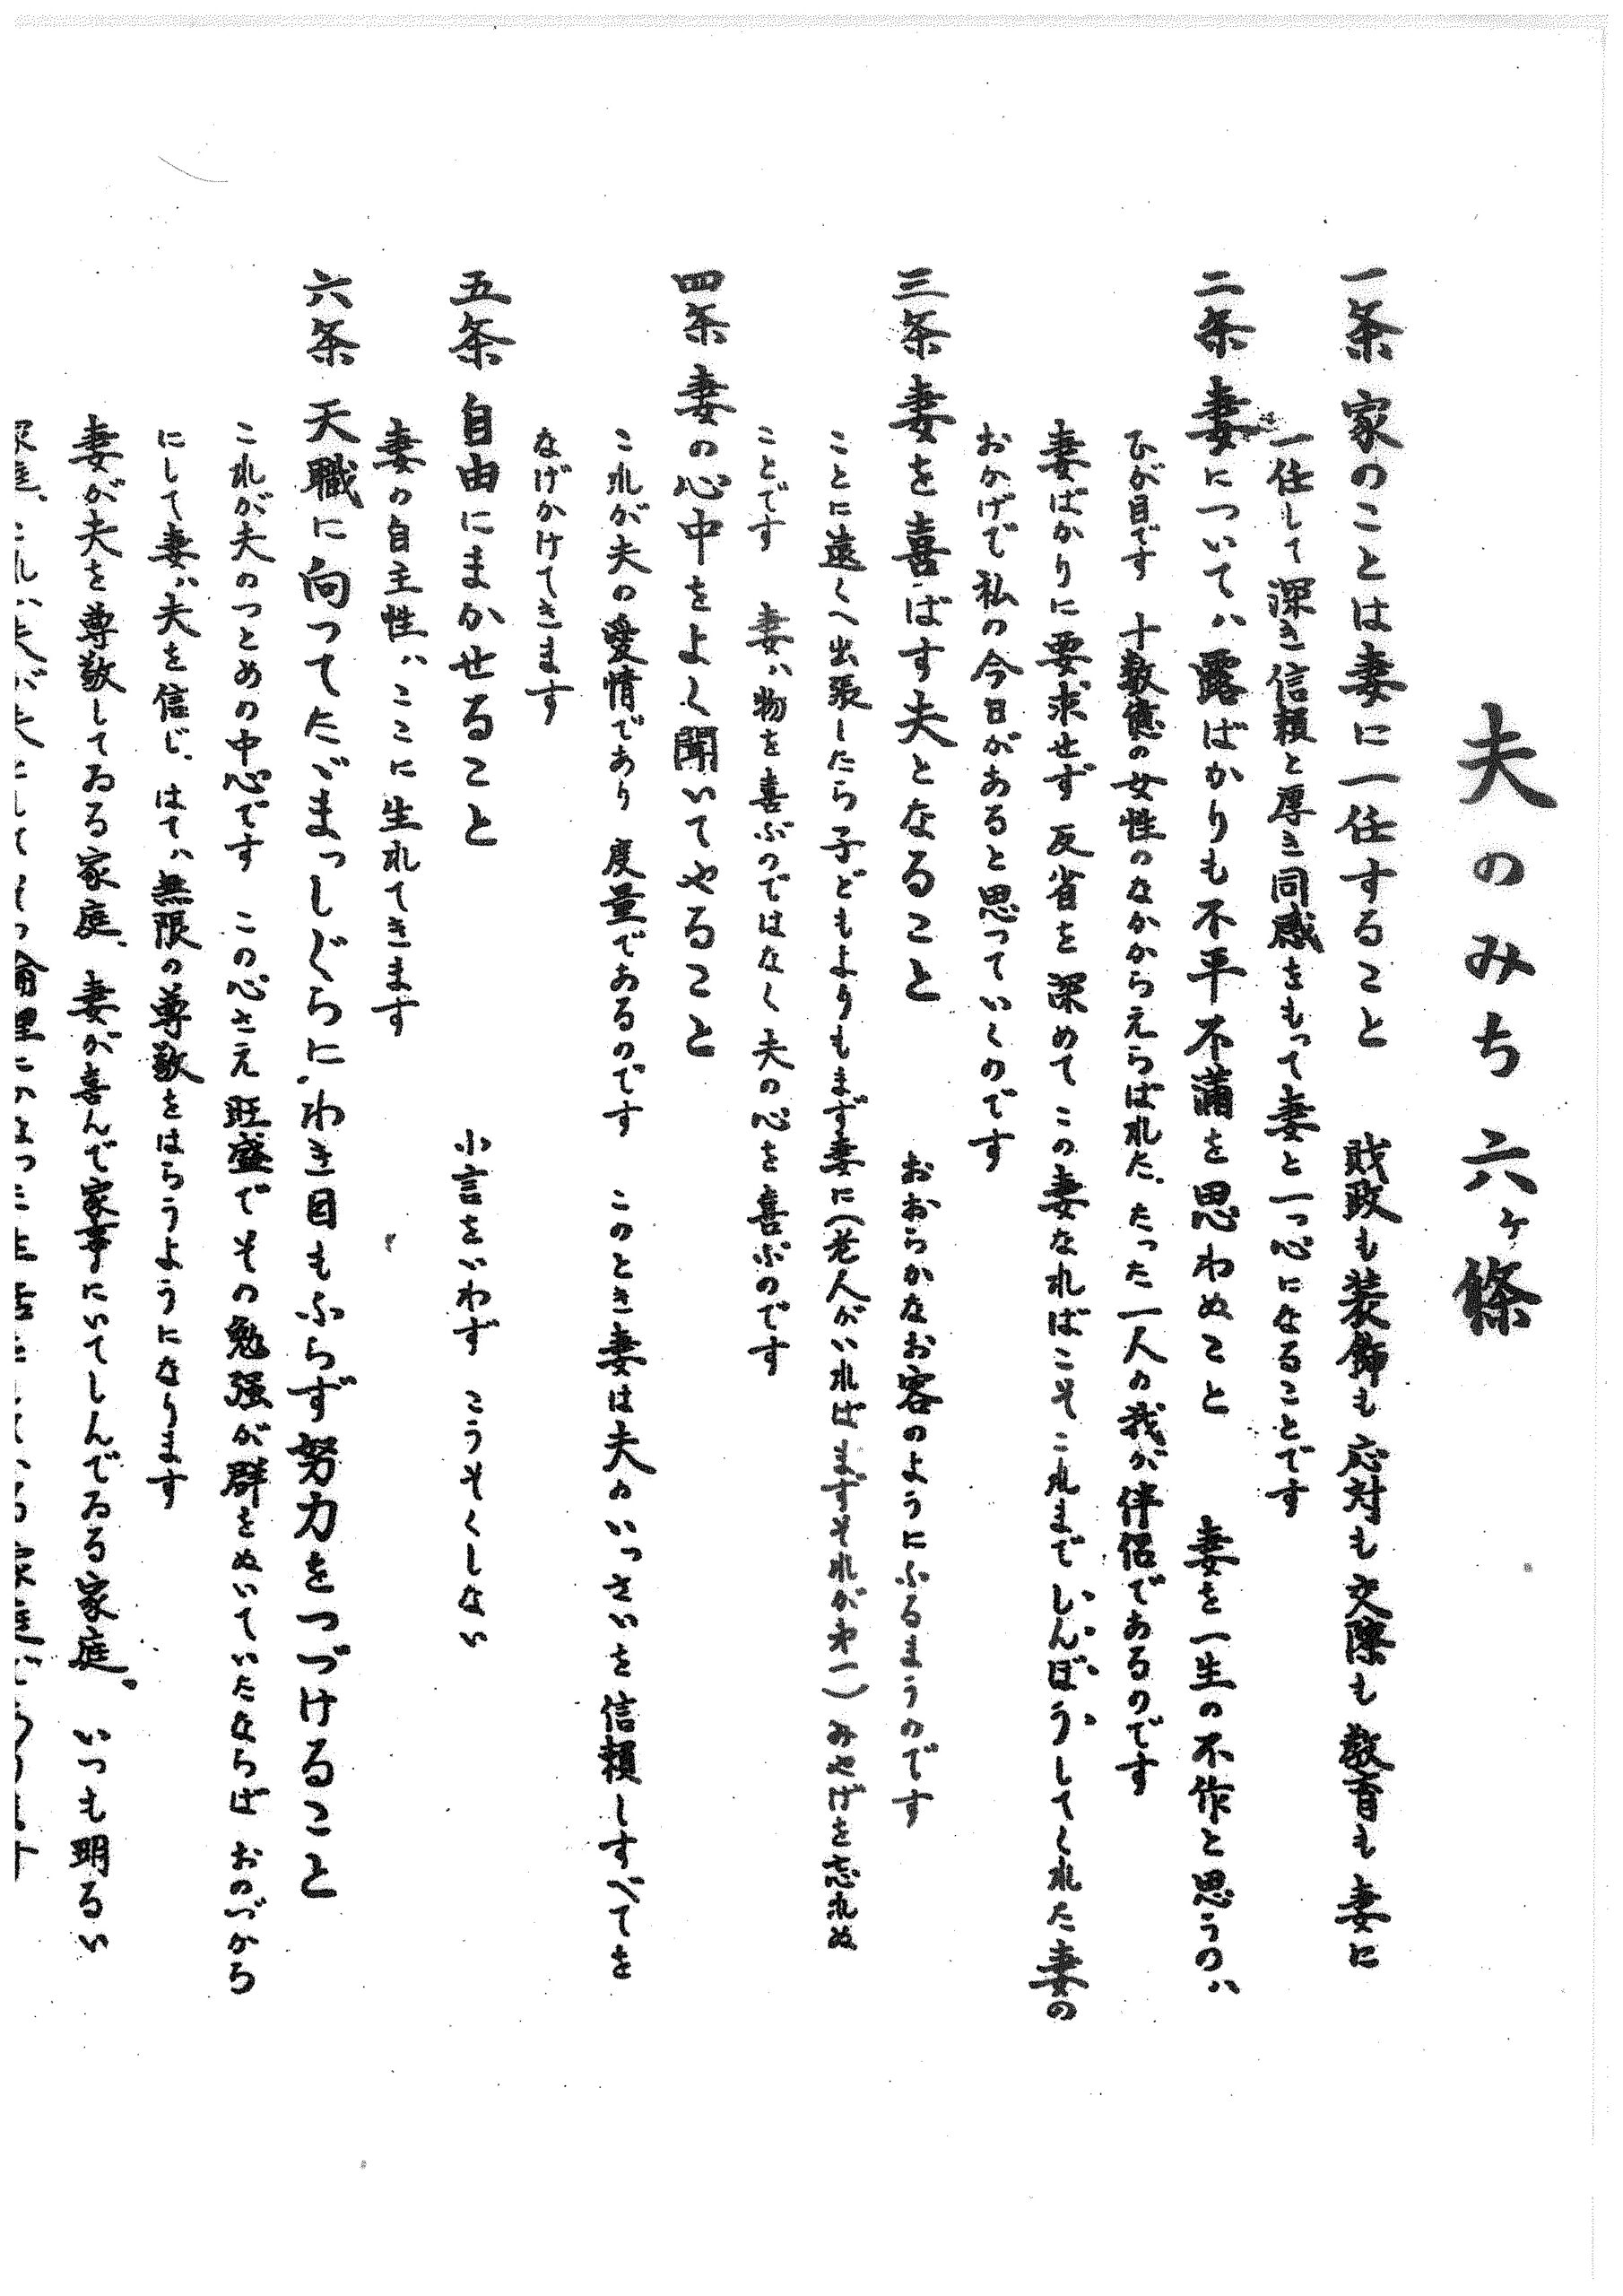 夫のみち 六ヶ條
一条 家のことは妻に一任すること 財政も装飾も応対も交際も教育も妻に
一任して深き信頼と厚き同感をもって妻と一つ心になることです
二条 妻については露ばかりも不平不満を思わぬこと 妻を一生の不作と思うのは
ひが目です 十数億の女性のなかからえらばれた、たった一人の我が伴侶であるのです
妻ばかりに要求せず 反省を深めて この妻なればこそ これまで しんぼうしてくれた妻の
おかげで私の今日があると思っていくのです
三条 妻を喜ばす夫となること おおらかなお客のようにふるまうのです
ことに遠くへ出張したら子どもよりもまず妻に(老人がいればまずそれが才一)みやげを忘れぬ
ことです 妻は物を喜ぶのではなく夫の心を喜ぶのです
四条 妻の心中をよく聞いてやること
これが夫の愛情であり 度量であるのです このとき妻は夫のいっさいを信頼しすべてを
なげかけてきます
五条 自由にまかせること 小言をいわず こうそくしない
妻の自主性は、ここに生れてきます
六条 天職に向ってたゞまっしぐらに、わき目もふらず努力をつづけること
これが夫のつとめの中心です この心さえ旺盛でその勉強が群をぬいていたならば おのづから
にして妻は夫を信じ、はては無限の尊敬をはらうようになります
妻が夫を尊敬してゐる家庭、妻が喜んで家事にいてしんでゐる家庭。 いつも明るい